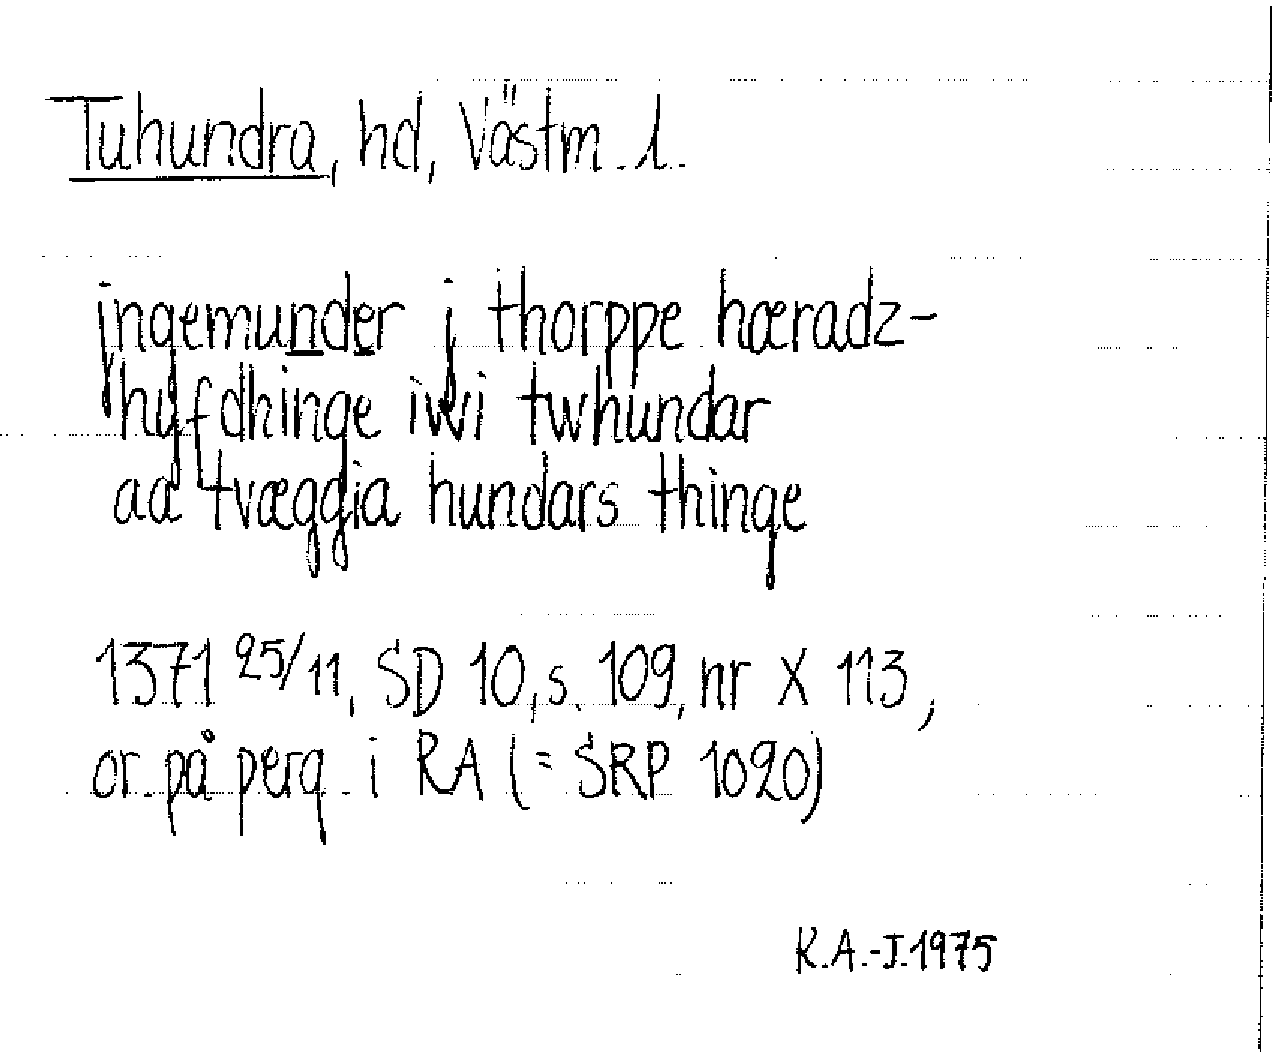 Tuhundra, hd, Västm. l.
jngemunder j thorppe hæradz-
hyfdhinge iwi twhundar
aa tvæggia hundars thinge
1371 25/11, SD 10, s. 109, nr X 113,
or. på perg. i RA (= SRP 1020)
K.A.-J. 1975